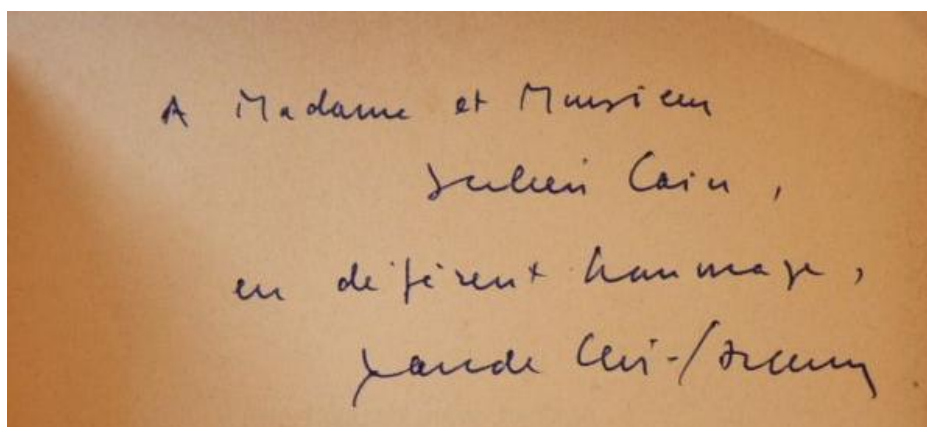 A Madame et Monsieur
Julien Cain,
en déférent hommage,
Claude Lévi-Strauss